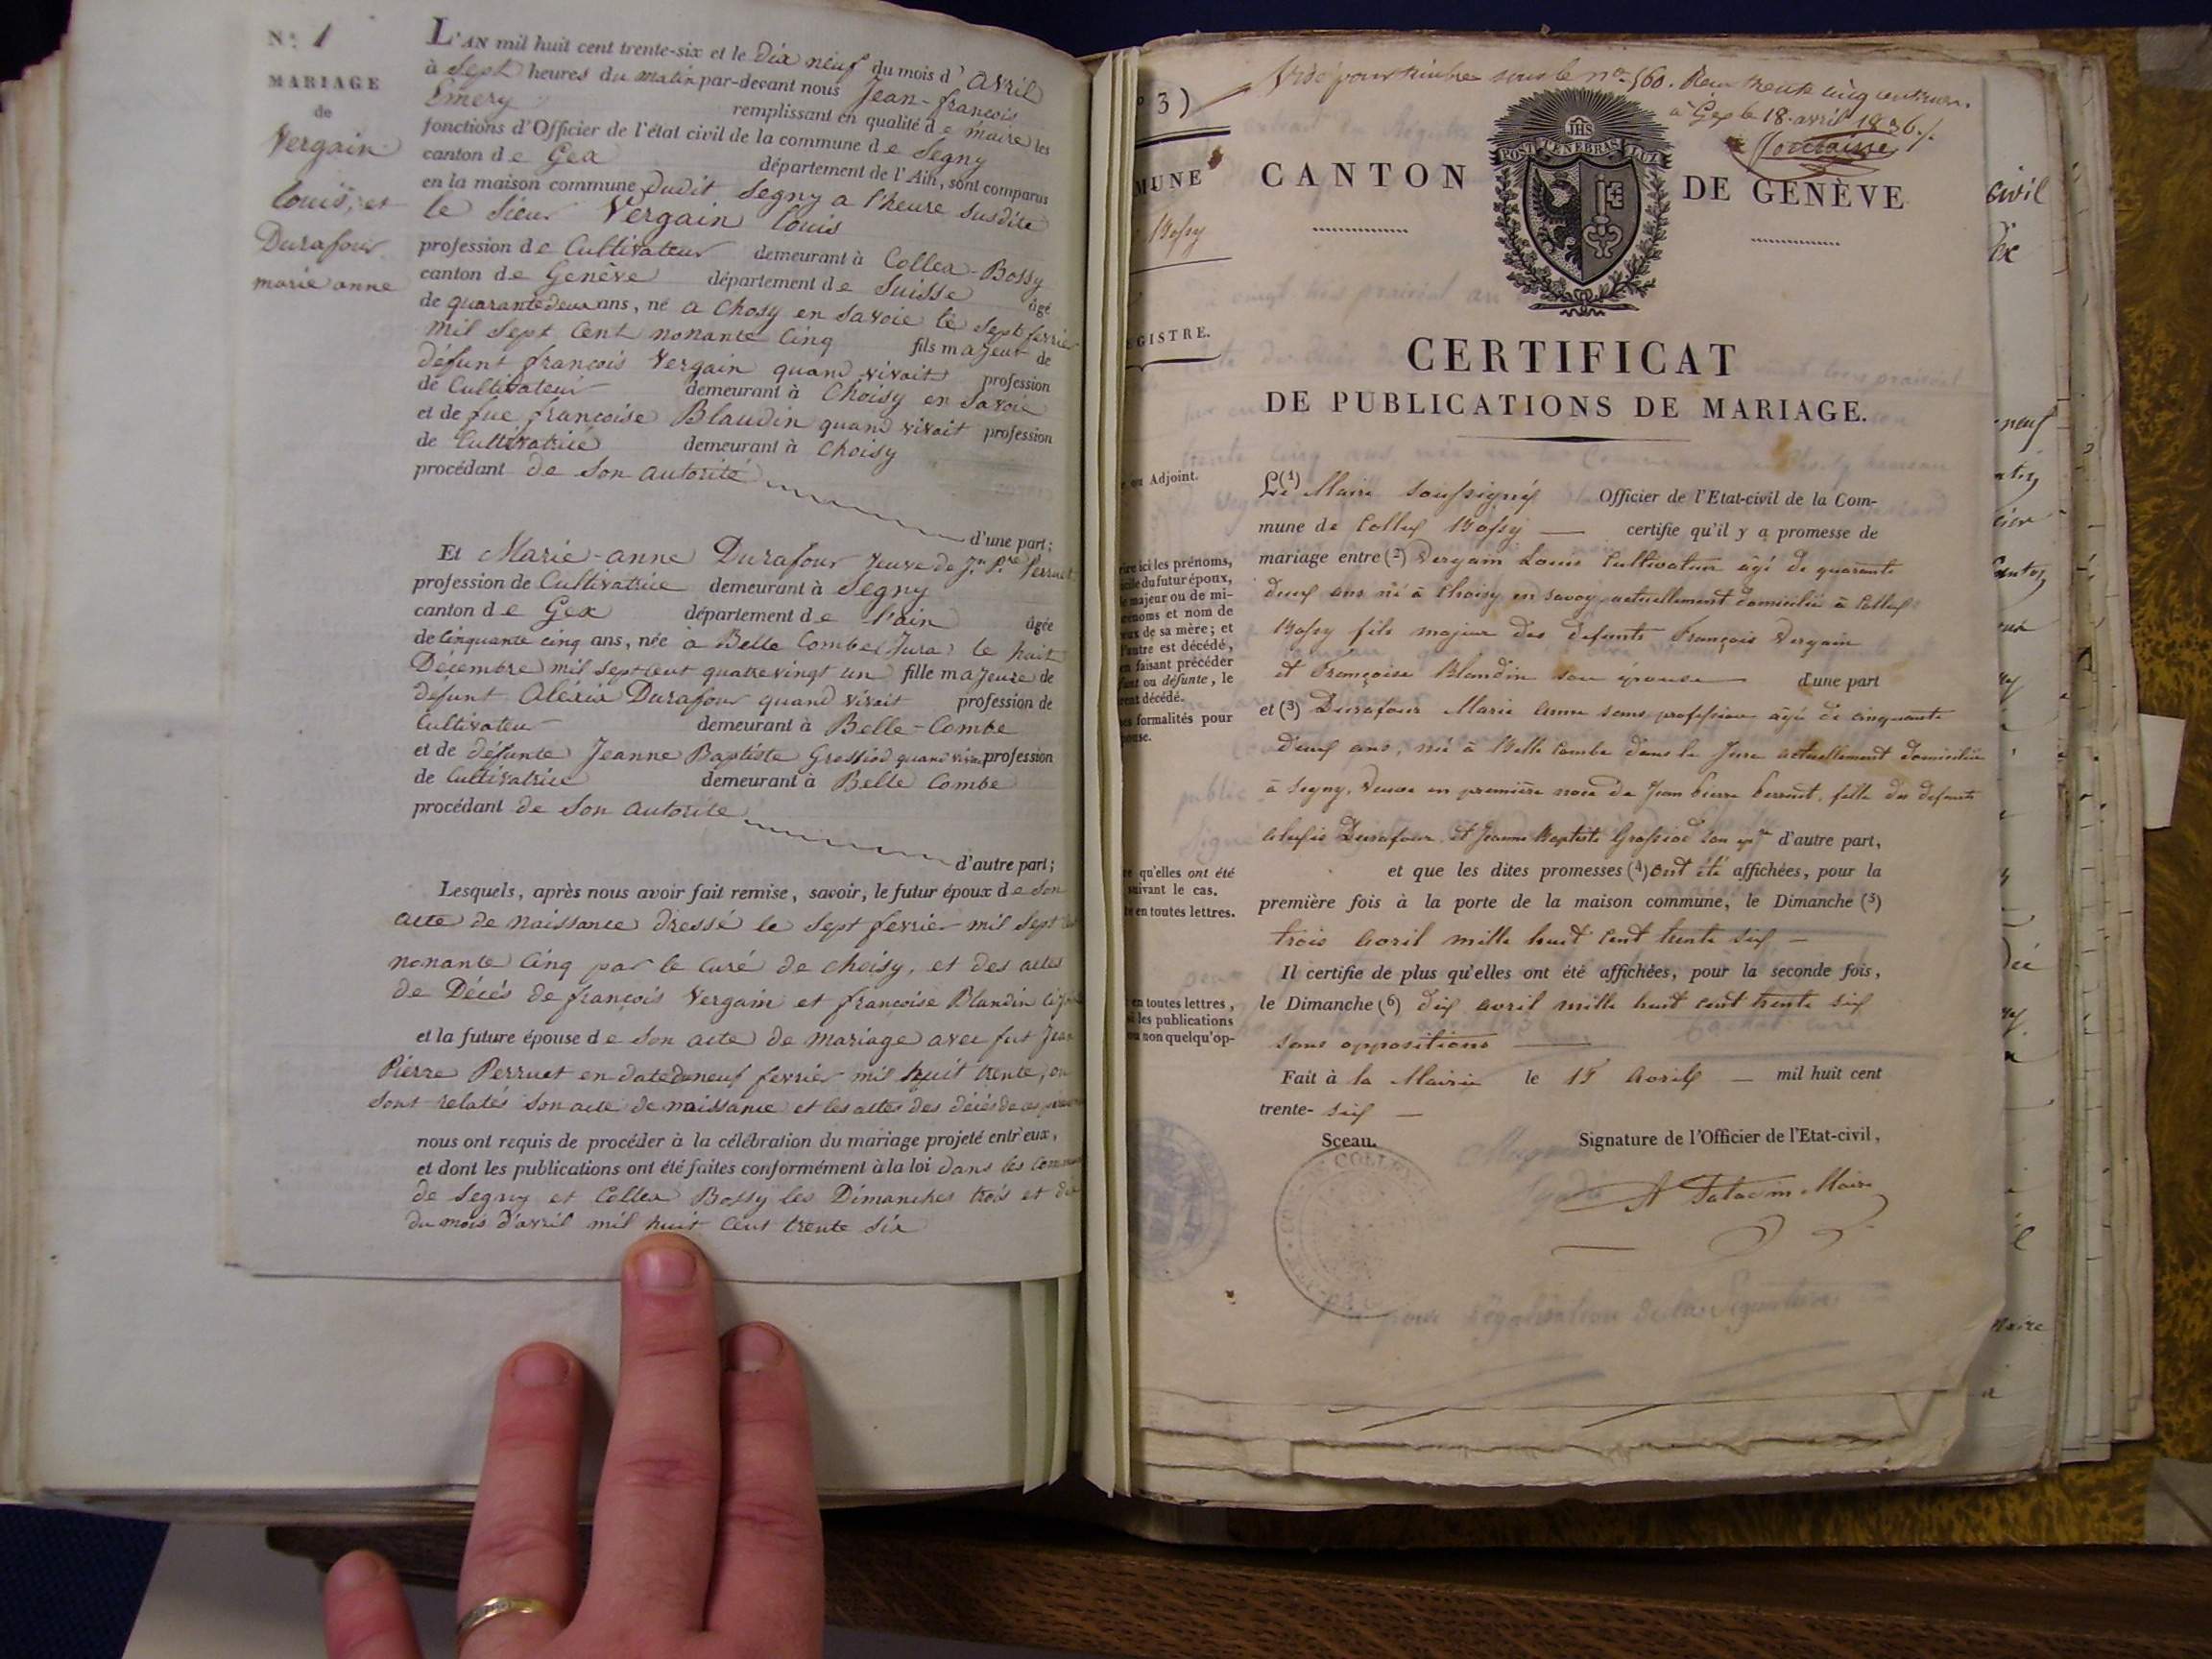 N.º 1
MARIAGE
de
Vergain
Louis, et
Durafour
marie anne
L'AN mil huit cent trente-six et le Dix neuf du mois d' avril
à Sept heures du matin par-devant nous Jean-françois
Emery remplissant en qualité de maire les
fonctions d'Officier de l'état civil de la commune de Segny
canton de Gex département de l'Ain, sont comparus
en la maison commune dudit Segny a l'heure susdite
le Sieur Vergain Louis
profession de Cultivateur demeurant à Collex-Bossy
canton de Genève département de Suisse âgé
de quarante deux ans, né a Choisy en Savoie le Sept fevrier
mil Sept Cent nonante Cinq fils majeur de
défunt françois Vergain quand vivait profession
de Cultivateur demeurant à Choisy en Savoie
et de fue françoise Blaudin quand vivait profession
de Cultivatrice demeurant à Choisy
procédant de Son autorité
d'une part;
Et Marie-anne Durafour veuve de Jn. Pre. Perruet
profession de Cultivatrice demeurant à Segny
canton de Gex département de l'ain âgée
de Cinquante Cinq ans, née à Belle Combe (Jura) le huit
Décembre mil Sept Cent quatre vingt un fille majeure de
défunt Alexis Durafour quand vivait profession de
Cultivateur demeurant à Belle-Combe
et de défunte Jeanne Baptiste Grossiod quand vivait profession
de Cultivatrice demeurant à Belle Combe
procédant de Son autorité
d'autre part;
Lesquels, après nous avoir fait remise, savoir, le futur époux de Son
acte de Naissance dressé le Sept fevrier mil Sept
nonante Cinq par le Curé de choisy, et des actes
de Décès de françois Vergain et françoise Blandin
et la future épouse de Son acte de mariage avec fut Jean
Pierre Perruet en date du neuf fevrier mil huit trente, ou
Sont relatés Son acte de naissance et les actes des décès de ses
nous ont requis de procéder à la célébration du mariage projeté entr'eux,
et dont les publications ont été faites conformément à la loi dans les
de Segny et Collex Bossy les Dimanches trois et dix
du mois d'avril mil huit Cent trente Six
3)
MUNE
Bossy
EGISTRE.
ou Adjoint.
ire ici les prénoms,
icile du futur époux,
majeur ou de mi-
rénoms et nom de
eux de sa mère; et
l'autre est décédé,
en faisant précéder
funt ou défunte, le
rent décédé.
es formalités pour
pouse.
re qu'elles ont été
suivant le cas.
re en toutes lettres.
en toutes lettres,
si les publications
ou non quelqu'op-
Visé pour timbre sous le no. 560. Reçu trente cinq centimes.
à Gex le 18 avril 1836.
POST TENEBRAS LUX
JHS
CANTON DE GENÈVE
CERTIFICAT
DE PUBLICATIONS DE MARIAGE.
Le (1) Maire Soussigné Officier de l'Etat-civil de la Com-
mune de Collex Bossy certifie qu'il y a promesse de
mariage entre (2) Vergain Louis Cultivateur âgé de quarante
deux ans né à Choisy en Savoy actuellement domicilié à Collex
Bossy fils majeur des défunts François Vergain
et Françoise Blandin son épouse d'une part
et (3) Durafour Marie Anne sans profession âgée de cinquante
deux ans, née à Belle Combe dans le Jura actuellement domiciliée
à Segny, Veuve en première noce de Jean Pierre Perruet, fille des défunts
Alexis Durafour et Jeanne Baptiste Grossiod son épse d'autre part,
et que les dites promesses (4) ont été affichées, pour la
première fois à la porte de la maison commune, le Dimanche (5)
trois avril mille huit cent trente six
Il certifie de plus qu'elles ont été affichées, pour la seconde fois,
le Dimanche (6) dix avril mille huit cent trente six
sans oppositions
Fait à la Mairie le 15 avril mil huit cent
trente-six
Sceau. Signature de l'Officier de l'Etat-civil,
COLLEX
Maire
pour légalisation de la Signature
civil
neuf
canton